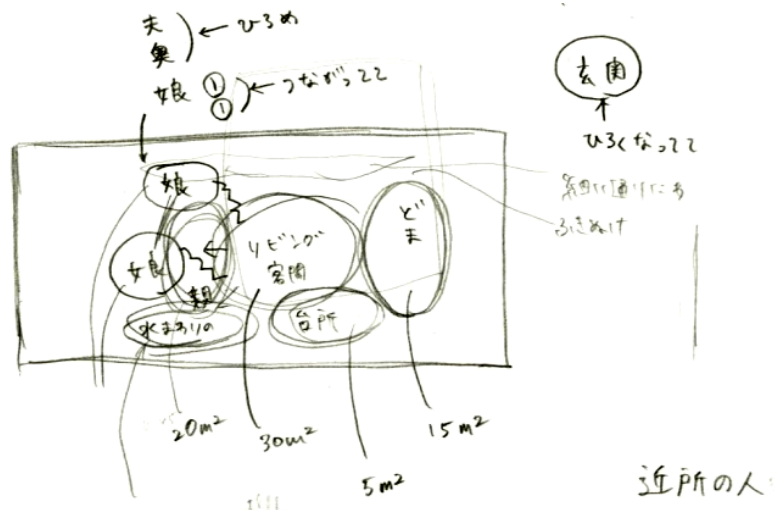 夫
奥
ひろめ
娘 ① ①
つながってて
玄関
ひろくなってて
ふきぬけ
娘
娘
親
リビング
客間
どま
水まわりの
台所
20m²
30m²
5m²
15m²
近所の人